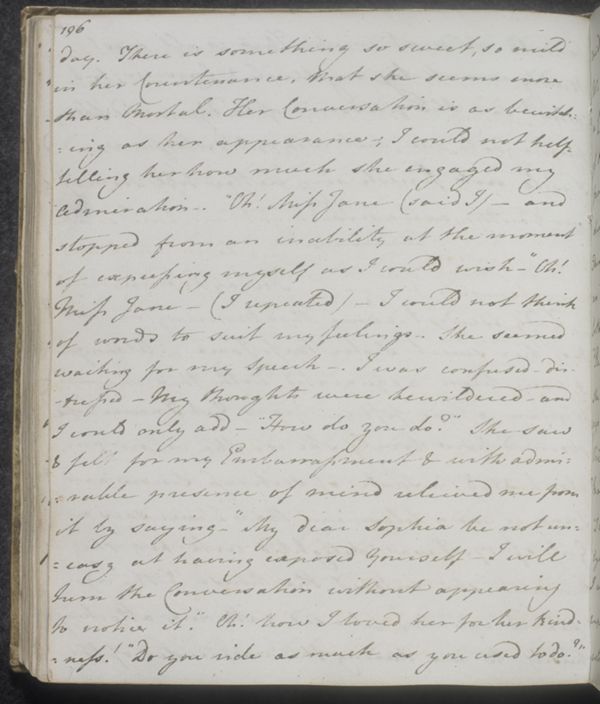 196
day. There is something so sweet, so mild
in her Countenance, that she seems more
than Mortal. Her Conversation is as bewitch-
-ing as her appearance; I could not help
telling her how much she engaged my
admiration–. "Oh! Miss Jane (said I) – and
stopped from an inability at the moment
of expressing myself as I could wish – "Oh!
Miss Jane – (I repeated) – I could not think
of words to suit my feelings. She seemed
waiting for my Speech –. I was confused – dis-
-tressed – My thoughts were bewildered – and
I could only add – "How do you do?" She saw
& felt for my Embarrassment & with admi-
-rable presence of mind releived me from
it by saying – "My dear Sophia be not un-
-easy at having exposed Yourself – I will
turn the Conversation without appearing
to notice it." Oh! how I loved her for her kind-
-ness! "Do you ride as much as you used to do?"